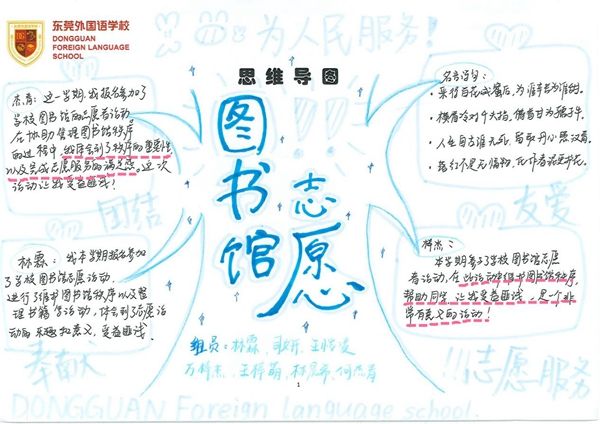 东莞外国语学校
DONGGUAN
FOREIGN LANGUAGE
SCHOOL
为人民服务!
思维导图
图书馆
志愿
杰青：这一学期，我报名参加了
学校图书馆的志愿者活动。
在协助管理图书馆秩序
的过程中，我体会到了秩序的重要性
以及完成志愿服务的满足感。这次
活动让我受益匪浅！
团结
名言语句：
·采得百花成蜜后，为谁辛苦为谁甜。
·横眉冷对千夫指，俯首甘为孺子牛。
·人生自古谁无死，留取丹心照汗青。
·落红不是无情物，化作春泥更护花。
友爱
林霖：我本学期报名参加
了学校图书馆志愿活动，
进行了维护图书馆秩序以及整
理书籍等活动，体会到了志愿活
动的乐趣和意义，受益匪浅。
奉献
本学期参与了学校图书馆志愿
者活动，在此活动中维护图书馆秩序，
帮助同学，让我受益匪浅，是一个非
常有意义的活动！
!!!志愿服务
组员：林霖，
王梓萌，
1
DONGGUAN Foreign language school.